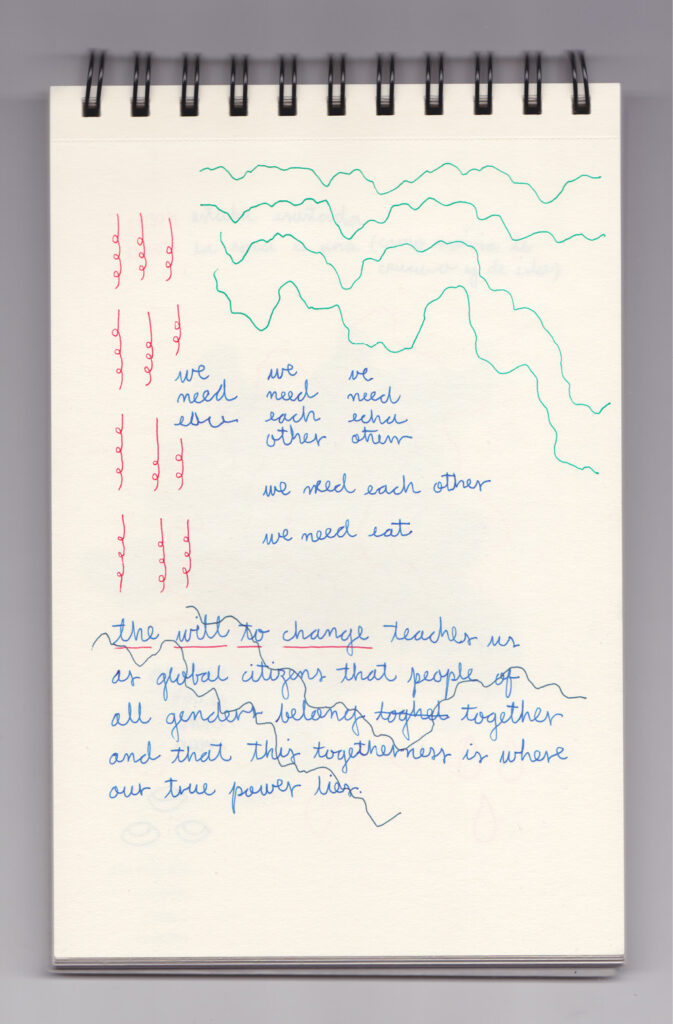 we we we
need need need
each echa
other otrem
we need each other
we need eat
the will to change teaches us
as global citizens that people of
all genders belong together
and that this togetherness is where
our true power lies.